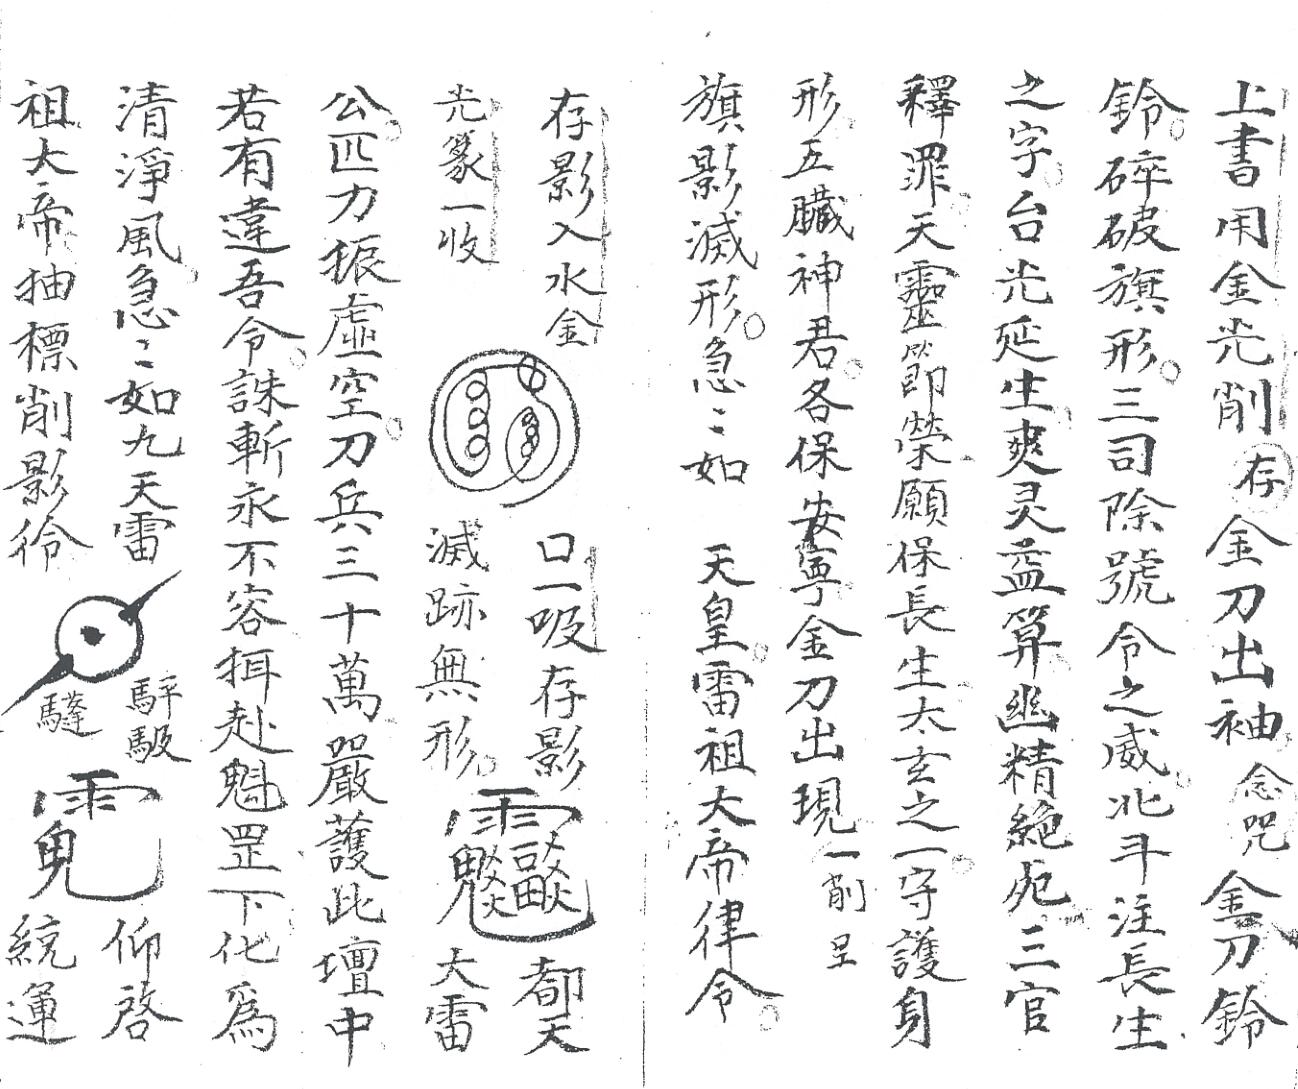 上書用金光削存金刀出袖念咒金刀鈴
鈴碎破旗形三司除號令之威北斗注長生
之字台光延生爽灵益算幽精絕死三官
釋罪天靈節榮願保長生太玄之一守護身
形五臟神君各保安寧金刀出現一削呈
旗影滅形急〻如 天皇雷祖大帝律令
存影入水金 口一吸存影 都天
光篆一收 滅跡無形 大雷
公匹力振虛空刀兵三十萬嚴護此壇中
若有違吾令誅斬永不容拑赴魁罡下化爲
清淨風急〻如九天雷 仰啓
祖大帝抽標削影彾 統運